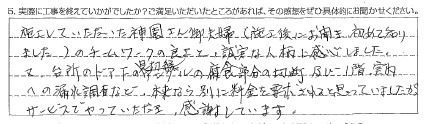 5. 実際に工事を終えていかがでしたか?ご満足いただいたところがあれば、その感想をぜひ具体的にお聞かせください。
施工していただいた神園さん御夫婦(施工後にお聞き初めて知り
ました)のチームワークの良さと、誠実な人柄に感心しました。
又、台所のドア下の 温調整 の腐食部分の切断及び1階、室内
への漏水調査など、本来なら別に料金を要求されると思っていましたが
サービスでやっていただき、感謝しています。